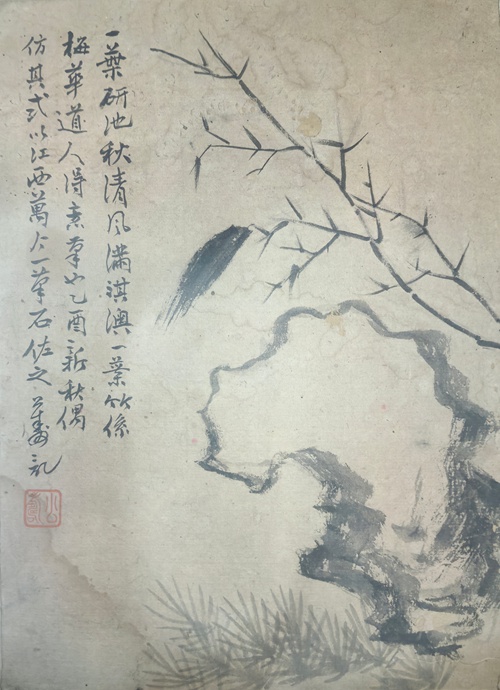 一葉研池秋清風滿淇澳一葉竹係
梅華道人得意筆也乙酉新秋偶
仿其式以江西萬个一筆石佐之記